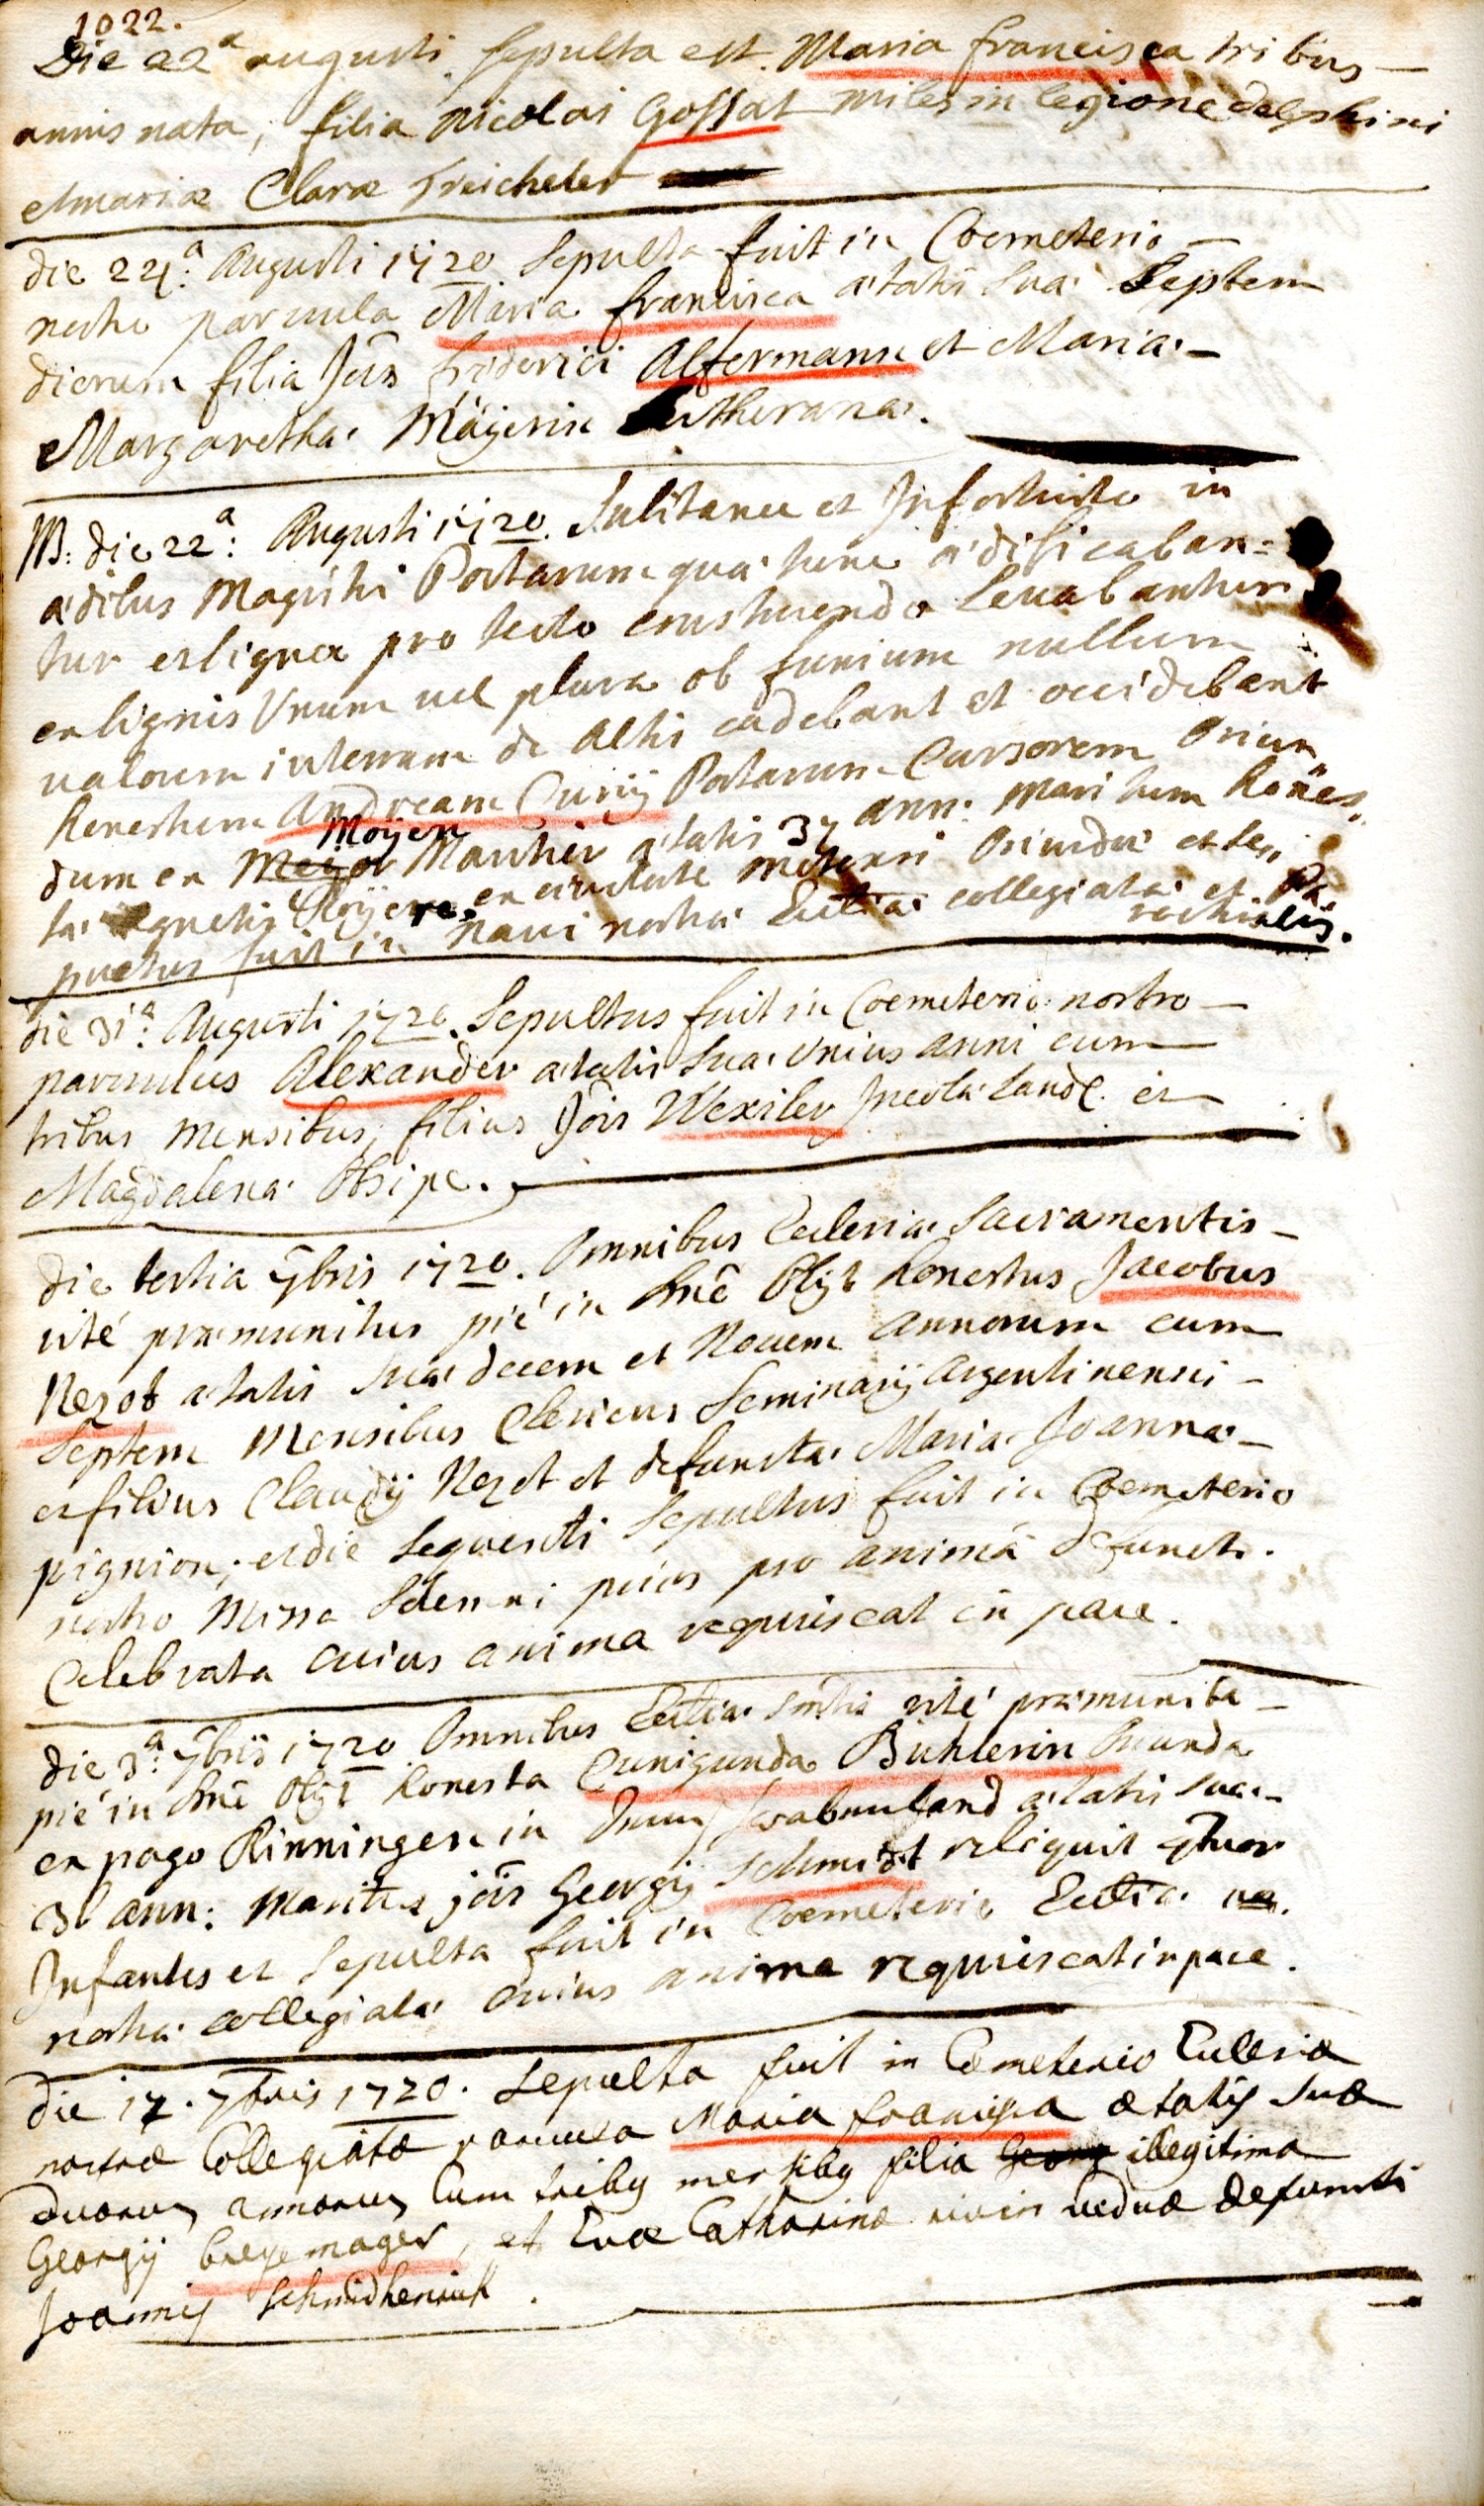 1022.
Die 22ᵃ augusti sepulta est Maria francisca tribus
annis nata, filia Nicolai Gossat miles in legione delphini
et mariæ Claræ
die 24.ᵃ Augusti 1720 Sepulta fuit in Coemeterio
nostro paruula Maria francisca ætatis suæ Septem
dierum filia Jois friderici Alfermann et Mariæ
Margarethæ Mäyerin Lutheranæ.
NB: die 22ᵃ: Augusti 1720. Subitanee et Infortuito in
ædibus Portarum quæ tunc ædificaban=
tur et ligna pro tecto construendo leuabantur
ex lignis Vnum uel plura ob funium nullum
ualorem in terram de Altis cadebant et occidebant
honestum Andream Portarum Cursorem Oriun
dum ex Mezot Moyen Mouthier ætatis 37 ann: maritum hones,,
tæ Agnetis ex ciuitate metensi Oriundæ et se,,
pultus fuit in naui nostræ Eccliæ collegiatæ et Pa
rochialis.
die 31ᵃ: Augusti 1720. Sepultus fuit in Coemeterio nostro
paruulus Alexander ætatis suæ Vnius anni cum
tribus mensibus, filius Jois Wexiler Incolæ Landc. et
Magdalenæ
die tertia 7bris 1720. Omnibus Ecclesiæ Sacramentis
rité præmunitus pié in Dnō Obijt honestus Jacobus
Nezot ætatis suæ decem et Nouem annorum cum
Septem Mensibus Clericus Seminarij Argentinensis
et filius Claudij Nezot et defunctæ Mariæ Joannæ
pignion; et die sequenti Sepultus fuit in Coemeterio
nostro Missa Solemni prius pro animâ defuncti.
Celebrata cuius anima requiescat in pace.
die 3ᵃ: 7bris 1720 Omnibus Eccliæ Smtis rité præmunita
pié in Dnō Obijt honesta Cunigunda Bühlerin Oriunda
ex pago Rinningen in Swabenland ætatis suæ
ann: Maritus jois Georgij Schmidt reliquit 4tuor
Infantes et Sepulta fuit in Coemeterio Eccliæ
nostræ collegiatæ cuius anima requiescat in pace.
die 17. 7bris 1720. Sepulta fuit in Cœmeterio Ecclesiæ
nostræ Collegiatæ paruula Maria francisca ætatis suæ
duorum annorum cum tribus mensibus filia Georg illegitima
Georgij, et Euæ Catharinæ viduæ defuncti
Joannis